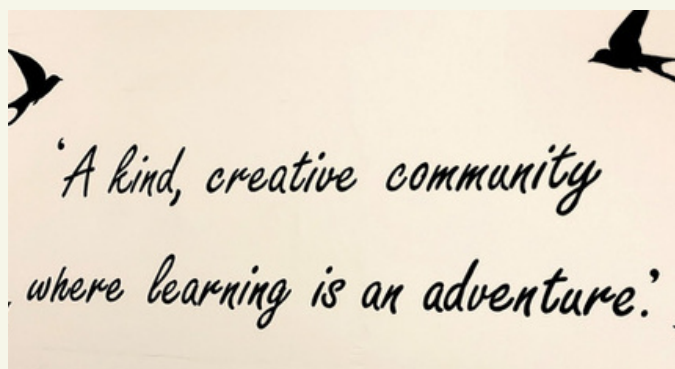 ‘A kind, creative community
where learning is an adventure.’